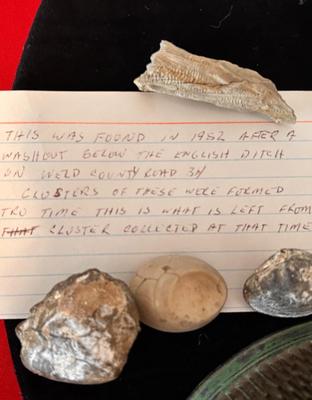 THIS WAS FOUND IN 1952 AFTER A
WASHOUT BELOW THE ENGLISH DITCH
ON WELD COUNTY ROAD 34
CLUSTERS OF THESE WERE FORMED
TRU TIME THIS IS WHAT IS LEFT FROM
THAT CLUSTER COLLECTED AT THAT TIME